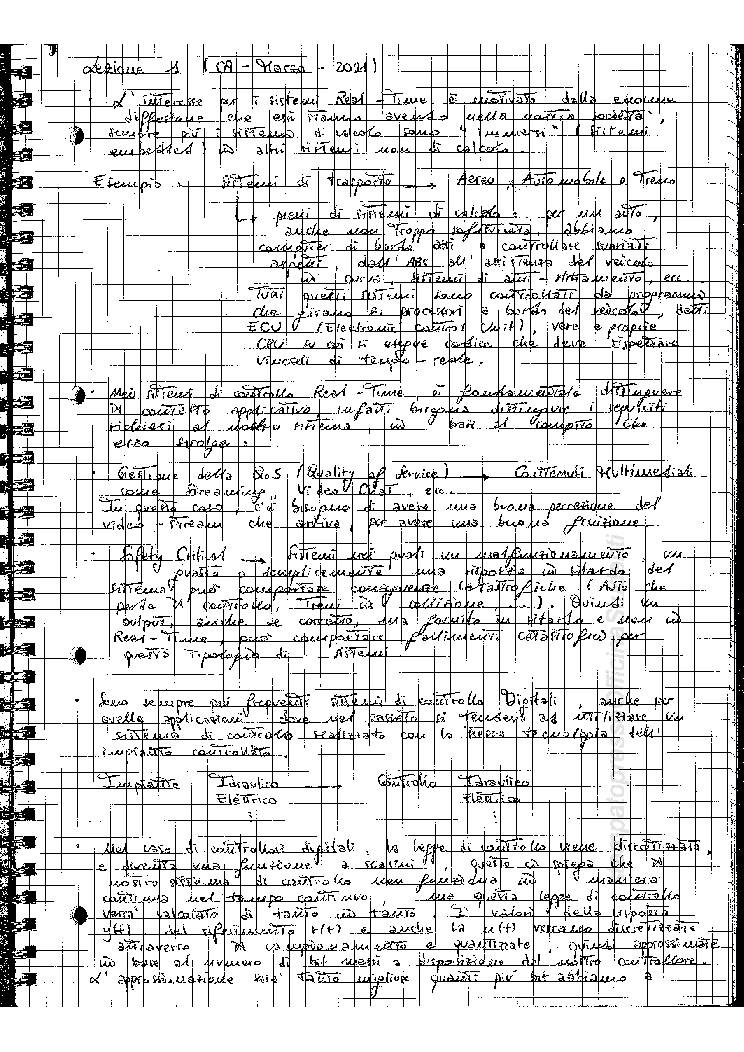 Lezione 1 (08 - Marzo - 2021)
L'interesse per i sistemi Real-Time è motivato dalla enorme
diffusione che essi stanno avendo nella nostra società,
sempre più i sistemi di calcolo sono "immersi" (sistemi
embedded) in altri sistemi non di calcolo.
Esempio: Sistemi di trasporto → Aereo, Automobile o Treno
pieni di sistemi di calcolo: per un auto,
anche non troppo sofisticata, abbiamo
computer di bordo atti a controllare svariati
aspetti, dall'ABS all'assistenza del veicolo
in curva, sistemi di ecc
Tutti questi sistemi sono controllati da programmi
che girano su processori a bordo del veicolo, detti
ECU (Electronic Control Unit), vere e proprie
CPU su cui si esegue codice che deve rispettare
vincoli di tempo-reale.
Nei sistemi di controllo Real-Time, è fondamentale distinguere
il contesto applicativo, infatti bisogna distinguere i requisiti
richiesti al nostro sistema in base al compito che
esso svolge:
Gestione della QoS (Quality of Service) → Contenuti Multimediali
come Streaming, Video Chat, ecc.
In questo caso, c'è bisogno di avere una buona percezione del
video-stream che arriva, per avere una buona fruizione.
Safety Critical → Sistemi nei quali un malfunzionamento, un
guasto o semplicemente una risposta in ritardo del
sistema può comportare conseguenze catastrofiche (Auto che
perde il controllo, Treni in collisione, ...). Quindi un
output, anche se corretto, ma fornito in ritardo e non in
Real-Time, può comportare fallimenti catastrofici per
questa tipologia di sistemi
Sono sempre più frequenti sistemi di controllo Digitali, anche per
quelle applicazioni dove nel passato si tendeva ad utilizzare un
sistema di controllo realizzato con la stessa tecnologia dell'
impianto controllato.
Impianto Idraulico → Controllo Idraulico
Elettrico Elettrico
Nel caso di controllori digitali, la legge di controllo viene discretizzata,
e diventa una funzione a scalini, questo ci spiega che il
nostro sistema di controllo non funziona in maniera
continua nel tempo continuo, ma questa legge di controllo
verrà calcolata di tanto in tanto. I valori della risposta
y(t) del riferimento r(t) e anche la u(t) verranno discretizzate
attraverso il campionamento e quantizzate, quindi approssimate
in base al numero di bit messi a disposizione dal nostro controllore.
L'approssimazione sarà tanto migliore quanti più bit abbiamo a